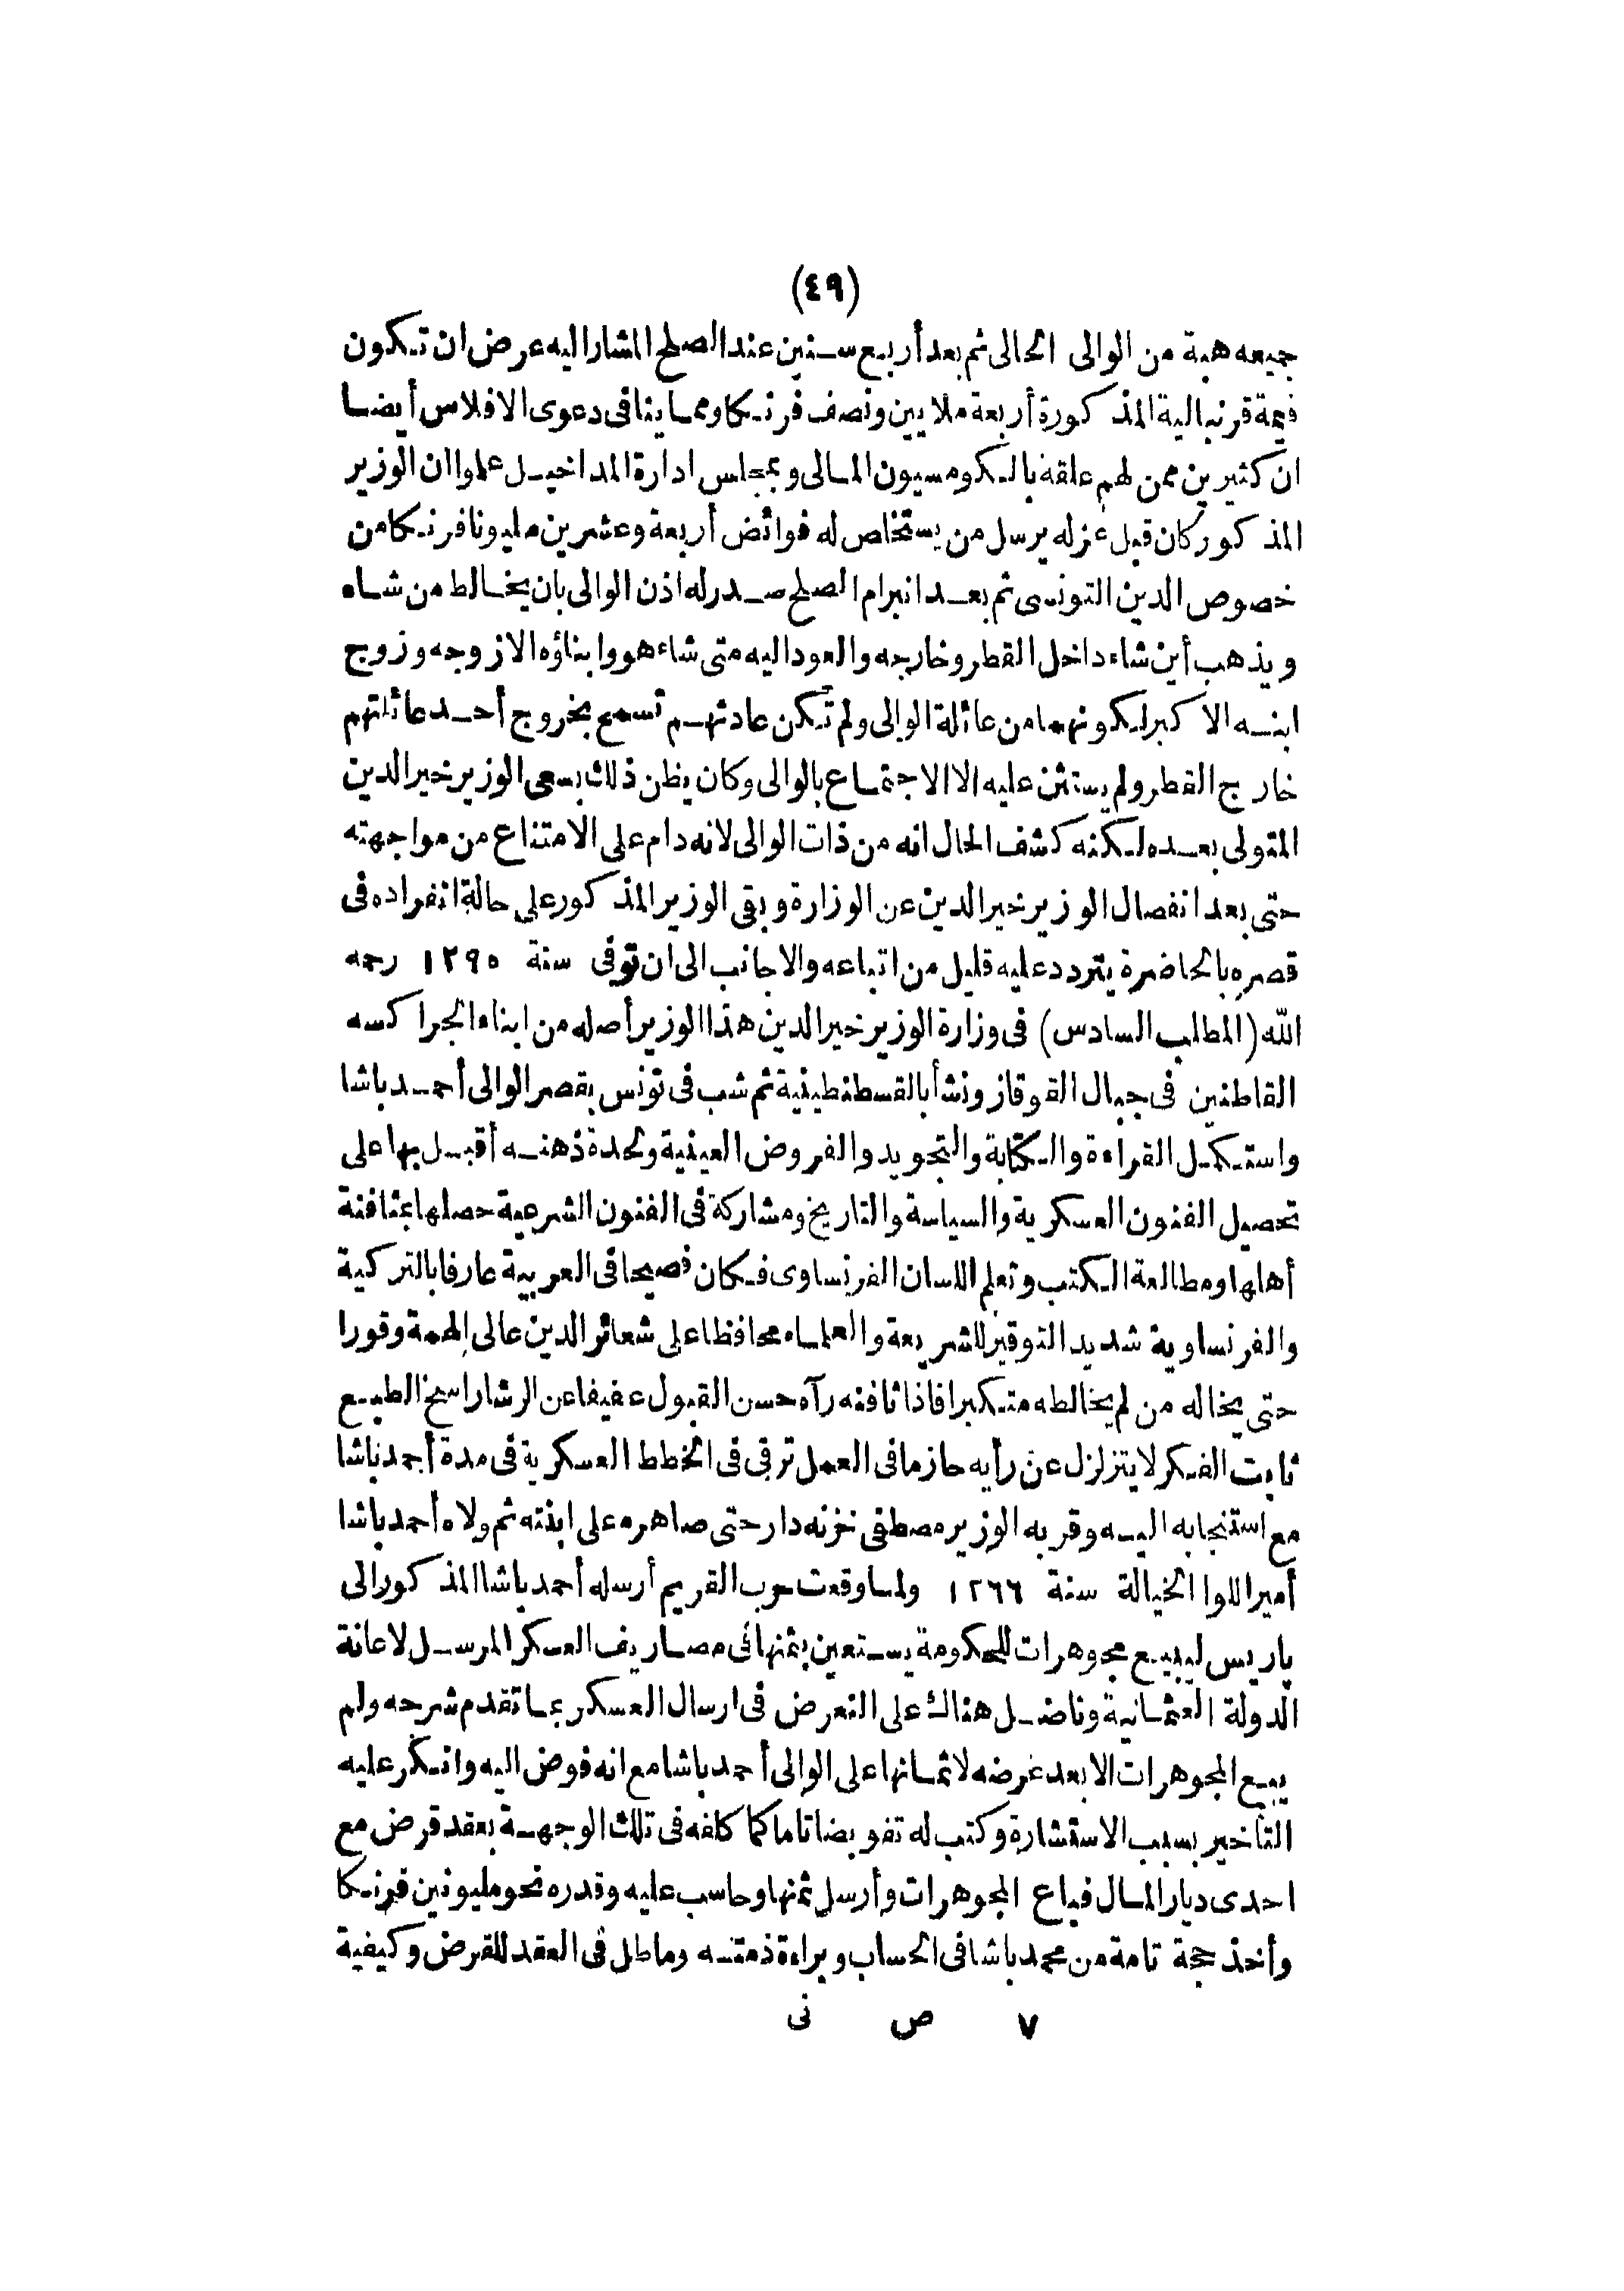 (٤٩)
جميعه هبة من الوالى الحالى ثم بعد أربع سنين عند الصلح المشار اليه عرض ان تكون
قيمة قرنبالية المذكورة أربعة ملايين ونصف فرنكا ومما ينافى دعوى الافلاس أيضا
ان كثيرين ممن لهم علقة بالكومسيون المالى وبمجلس ادارة المداخيل علموا ان الوزير
المذكور كان قبل عزله يرسل من يستخلص له فوائض أربعة وعشرين مليونا فرنكا من
خصوص الدين التونسى ثم بعد انبرام الصلح صدر له اذن الوالى بان يخالط من شاء
ويذهب أين شاء داخل القطر وخارجه والعود اليه متى شاء هو وابناؤه الا زوجه وزوج
ابنه الاكبر لكونهما من عائلة الوالى ولم تكن عادتهم تسمح بخروج أحد عائلتهم
خارج القطر ولم يستثن عليه الا الاجتماع بالوالى وكان يظن ذلك بسعى الوزير خير الدين
المتولى بعده لكنه كشف الحال انه من ذات الوالى لانه دام على الامتناع من مواجهته
حتى بعد انفصال الوزير خير الدين عن الوزارة وبقى الوزير المذكور على حالة انفراده فى
قصره بالحاضرة يتردد عليه قليل من اتباعه والاجانب الى ان توفى سنة ١٢٩٥ رحمه
الله (المطلب السادس) فى وزارة الوزير خير الدين هذا الوزير أصله من ابناء الجراكسه
القاطنين فى جبال القوقاز ونشأ بالقسطنطينية ثم شب فى تونس بقصر الوالى أحمد باشا
واستكمل القراءة والكتابة والتجويد والفروض العينية ولحدة ذهنه أقبل بها على
تحصيل الفنون العسكرية والسياسة والتاريخ ومشاركة فى الفنون الشرعية حصلها بمثافنة
أهلها ومطالعة الكتب وتعلم اللسان الفرنساوى فكان فصيحا فى العربية عارفا بالتركية
والفرنساوية شديد التوقير للشريعة والعلماء محافظا على شعائر الدين عالى الهمة وقورا
حتى يخاله من لم يخالطه متكبرا فاذا ثافنه رآه حسن القبول عفيفا عن الرشا راسخ الطبع
ثابت الفكر لا يتزلزل عن رأيه حازما فى العمل ترقى فى الخطط العسكرية فى مدة أحمد باشا
مع استنجابه اليه وقربه الوزير مصطفى خزنه دار حتى صاهره على ابنته ثم ولاه أحمد باشا
أمير اللوا الخيالة سنة ١٢٦٦ ولما وقعت حرب القريم أرسله أحمد باشا المذكور الى
باريس ليبيع مجوهرات للحكومة يستعين بثمنها فى مصاريف العسكر المرسل لاعانة
الدولة العثمانية وناضل هناك على التعرض فى ارسال العسكر بما تقدم شرحه ولم
يبع المجوهرات الا بعد عرضه لاثمانها على الوالى أحمد باشا مع انه فوض اليه وانكر عليه
التأخير بسبب الاستشارة وكتب له تفويضا تاما كما كلفه فى تلك الوجهة بعقد قرض مع
احدى ديار المال فباع المجوهرات وأرسل ثمنها وحاسب عليه وقدره نحو مليونين فرنكا
وأخذ حجة تامة من محمد باشا فى الحساب وبراءة ذمته وماطل فى العقد للقرض وكيفية
٧ ص نى